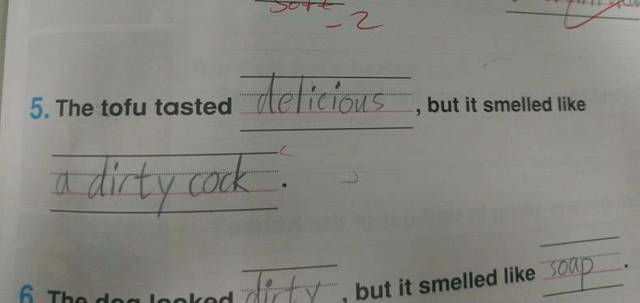 soft
-2
5. The tofu tasted delicious, but it smelled like
a dirty cock.
6 The dog looked dirty, but it smelled like soap.